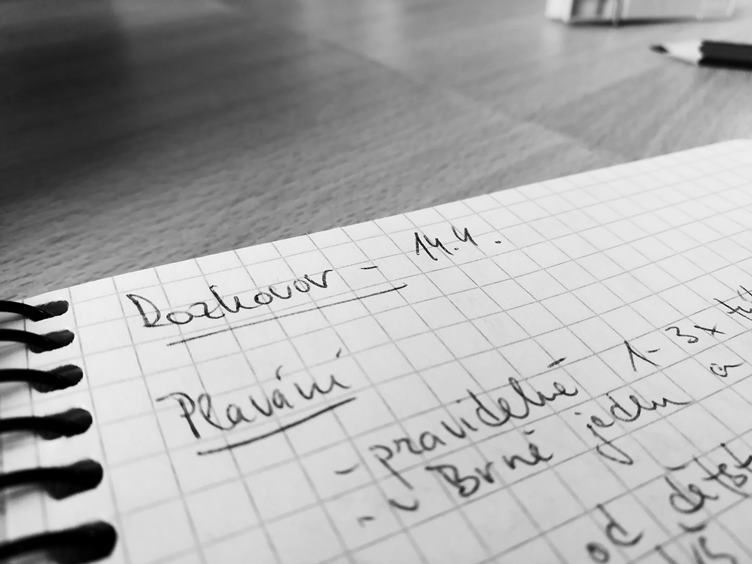 Rozhovor - 14.4.
Plavání
- pravidelně 1-3x
- v Brně jeden a
od dětsk